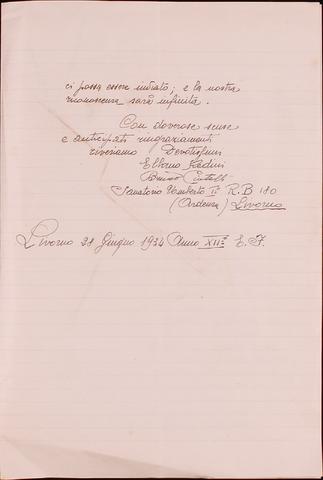 ci possa essere indicato; e la nostra
riconoscenza sarà infinita.
Con doverose scuse
e anticipati ringraziamenti
Devotissimi
Bruno
Sanatorio Umberto I° R.B 180
(Ardenza) Livorno
Livorno 28 Giugno 1934 Anno XII° E. F.